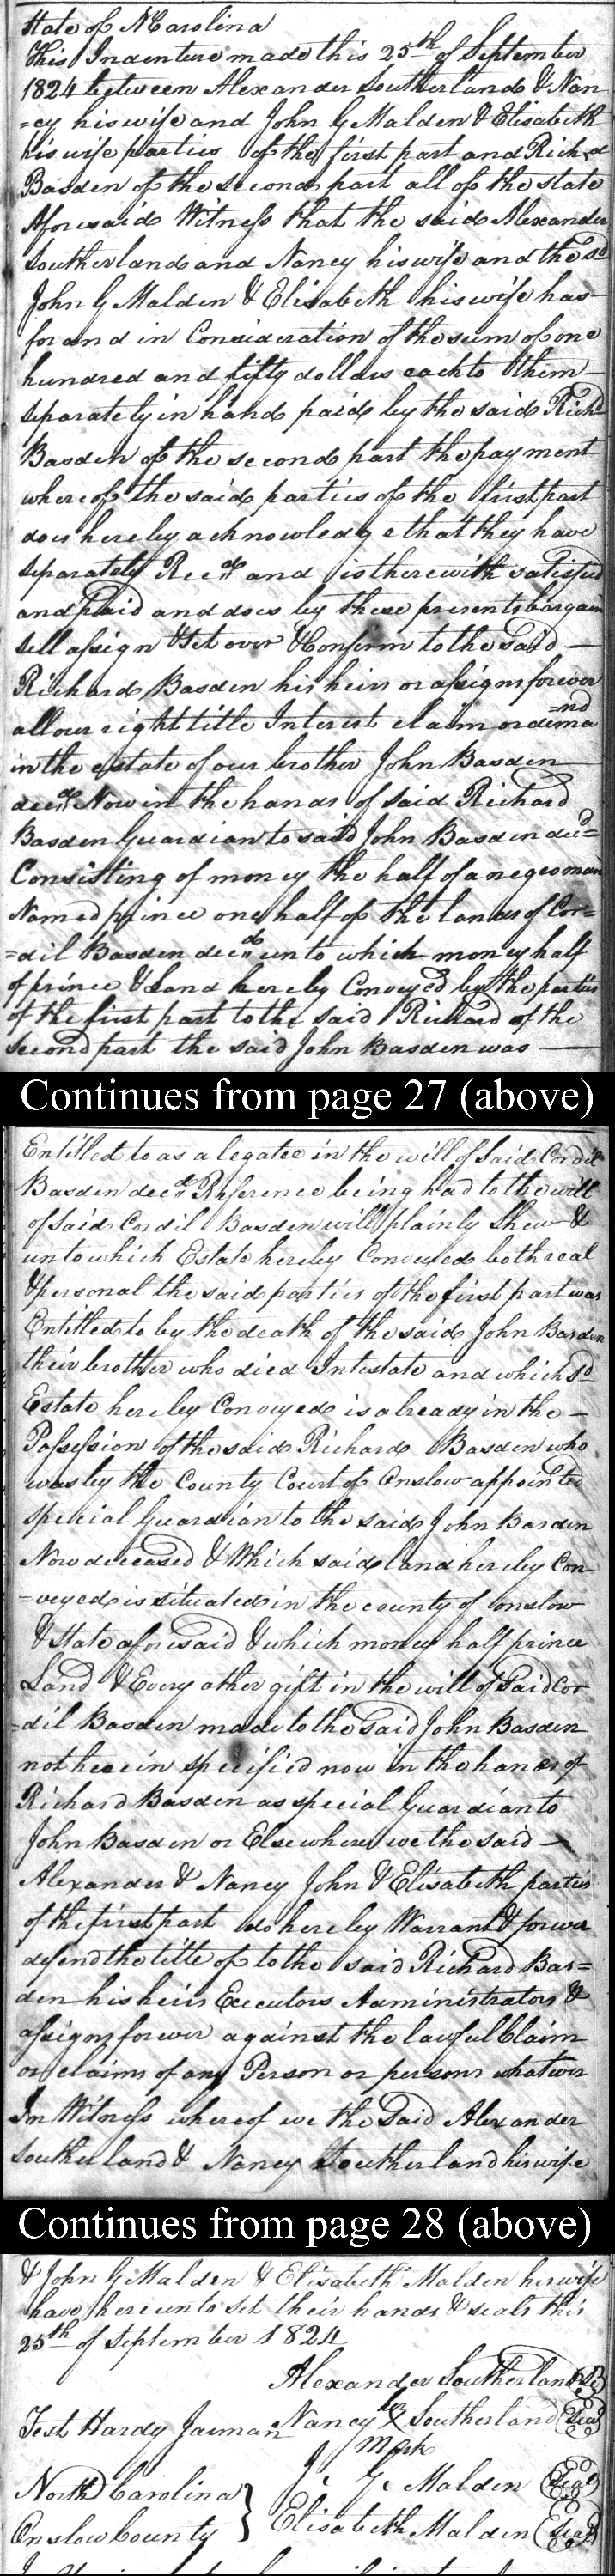 State of N Carolina
This Indenture made this 25th of September
1824 between Alexander Southerland & Nan
=cy his wife and John G Malden & Elisabeth
his wife parties of the first part and Richd
Basden of the second part all of the state
Aforesaid Witness that the said Alexander
Southerland and Nancy his wife and the sd
John G Malden & Elisabeth his wife has
for and in Consideration of the sum of one
hundred and fifty dollars each to them
separately in hand paid by the said Richd
Basden of the second part the payment
whereof the said parties of the first part
does hereby acknowledge that they have
separately Recd and is therewith satisfied
and paid and does by these presents bargain
sell assign & set over & Confirm to the said
Richard Basden his heirs or assigns forever
all our right title Interest claim or dema
=nd
in the estate of our brother John Basden
decd Now in the hands of said Richard
Basden Guardian to said John Basden decd=
Consisting of money the half of a negroman
Named prince one half of the lands of Cor=
=dil Basden decd unto which money half
of prince & Land hereby Conveyed by the parties
of the first part to the said Richard of the
second part the said John Basden was
Continues from page 27 (above)
Entitled to as a legatee in the will of said Cordil
Basden decd Reference being had to the will
of said Cordil Basden will plainly Shew &
unto which Estate hereby Conveyed both real
& personal the said parties of the first part was
Entitled to by the death of the said John Basden
their brother who died Intestate and which sd
Estate hereby Conveyed is already in the
Possession of the said Richard Basden who
was by the County Court of Onslow appointed
special Guardian to the said John Basden
Now deceased & Which said land hereby Con
=veyed is situated in the county of onslow
& State aforesaid & which money half prince
Land & Every other gift in the will of Said Cor
=dil Basden made to the said John Basden
not herein specified now in the hands of
Richard Basden as special Guardian to
John Basden or Elsewhere we the said
Alexander & Nancy John & Elisabeth parties
of the first part do hereby Warrant & forever
defend the title of to the said Richard Bas=
den his heirs Executors Administrators &
assigns forever against the lawful Claim
or claims of any Person or persons whatever
In Witness whereof we the Said Alexander
Southerland & Nancy Southerland his wife
Continues from page 28 (above)
& John G Malden & Elisabeth Malden his wife
have hereunto set their hands & seals this
25th of September 1824
Alexander Southerland
her
Test Hardy Jarman Nancy X Southerland (Seal)
Mark
North Carolina } J. G. Malden (Seal)
Onslow County } Elisabeth Malden (Seal)